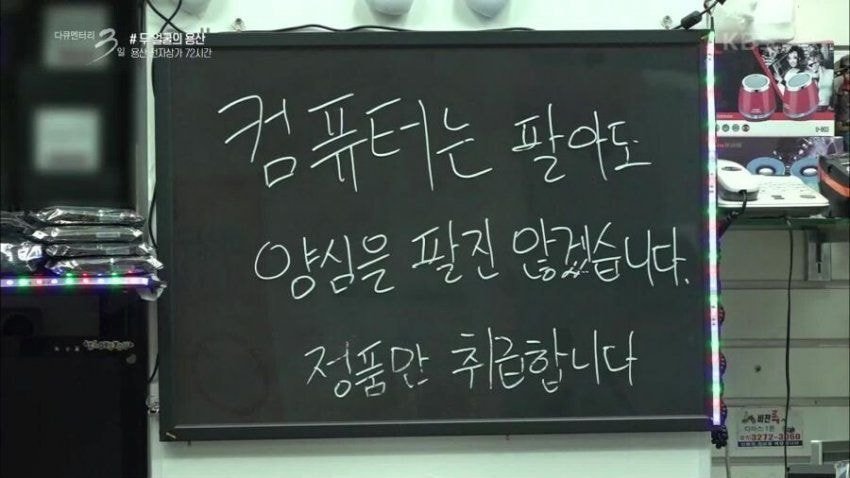 다큐멘터리 3일
# 두 얼굴의 용산
용산 전자상가 72시간
KBS
컴퓨터는 팔아도
양심을 팔진 않겠습니다.
정품만 취급합니다
비젼
3272-3060